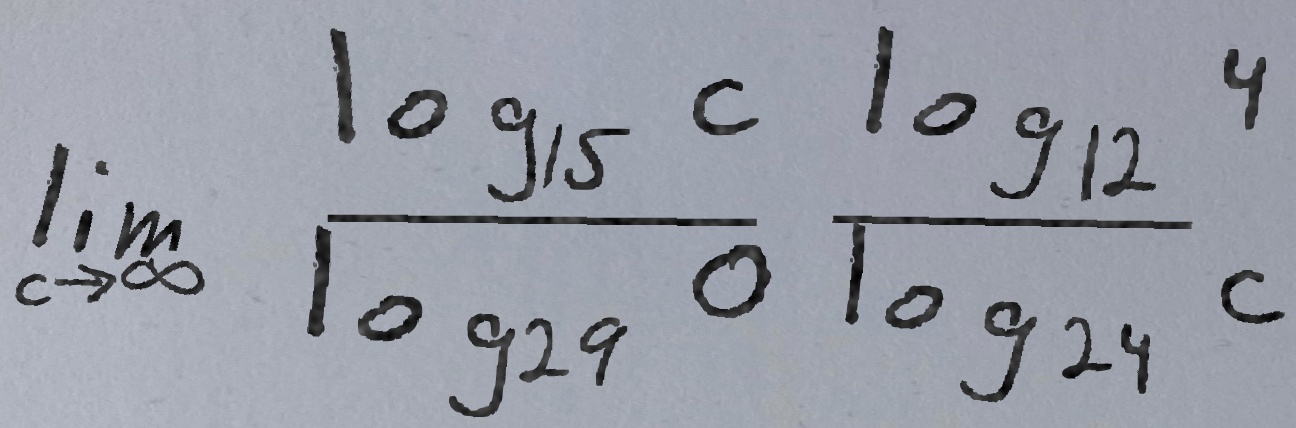 \lim_{c \to \infty} \frac{\log_{15} c}{\log_{29} 0} \frac{\log_{12} 4}{\log_{24} c}